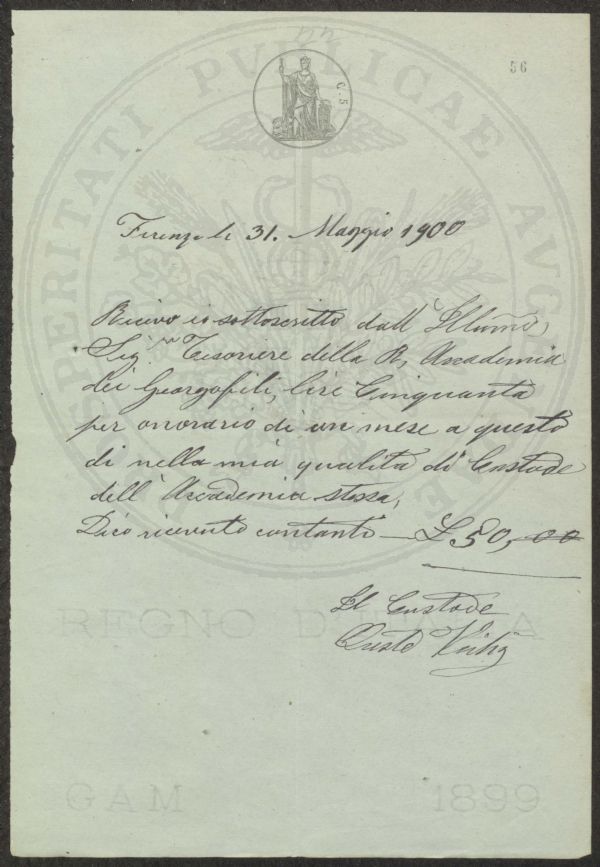 56
C. 5
PROSPERITATI PVBLICAE AVGENDAE
Firenze li 31. Maggio 1900
Ricevo io sottoscritto dall' Illumo,
Sig.r Tesoriere della R, Accademia
dei Georgofili, lire Cinquanta
per onorario di un mese a questo
dì nella mia qualità di Custode
dell' Accademia stessa,
Dico ricevuto contanti — £ 50,00
Il Custode
REGNO D'ITALIA
GAM 1899